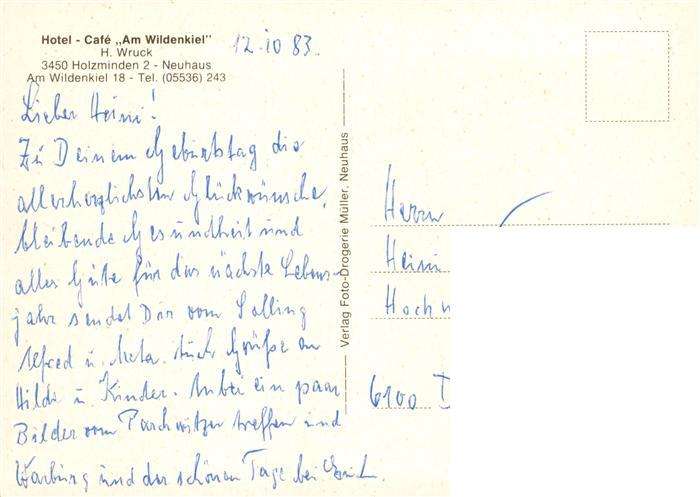 Hotel - Café „Am Wildenkiel"
H. Wruck
3450 Holzminden 2 - Neuhaus
Am Wildenkiel 18 - Tel. (05536) 243
12.10 83.
Lieber Heini!
Zu Deinem Geburtstag die
allerherzlichsten Glückwünsche,
bleibende Gesundheit und
alles Gute für das nächste Lebens-
jahr sendet Dir vom Solling
Alfred u. Meta. Auch Grüße an
Hilde u. Kinder. Anbei ein paar
Bilder vom Parchwitzer treffen und
Warburg und der schönen Tage bei Euch.
Verlag Foto-Drogerie Müller, Neuhaus
Herrn
Heini
6100